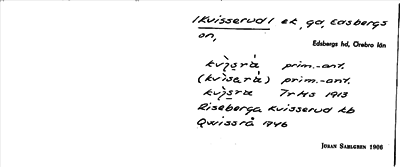 /Kvisserud/ ek, gd, Edsbergs
sn,
Edsbergs hd, Örebro län
kvìsrá prim.-ant.
(kvìsərá) prim.-ant.
kvìsra TrHs 1913
Riseberga Kvisserud kb
Qwissrå 1746
JOHAN SAHLGREN 1906